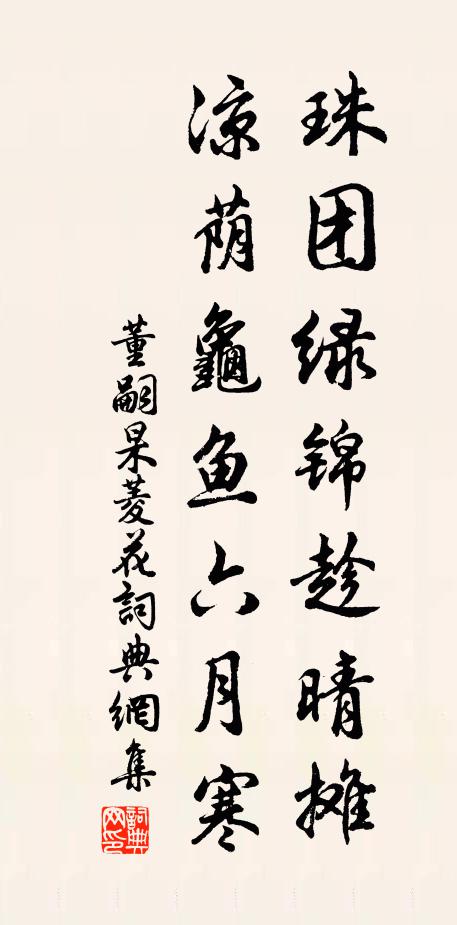 珠团绿锦趁晴摊
凉荫龜鱼六月寒
董嗣杲菱花詞典網集
詞典网印